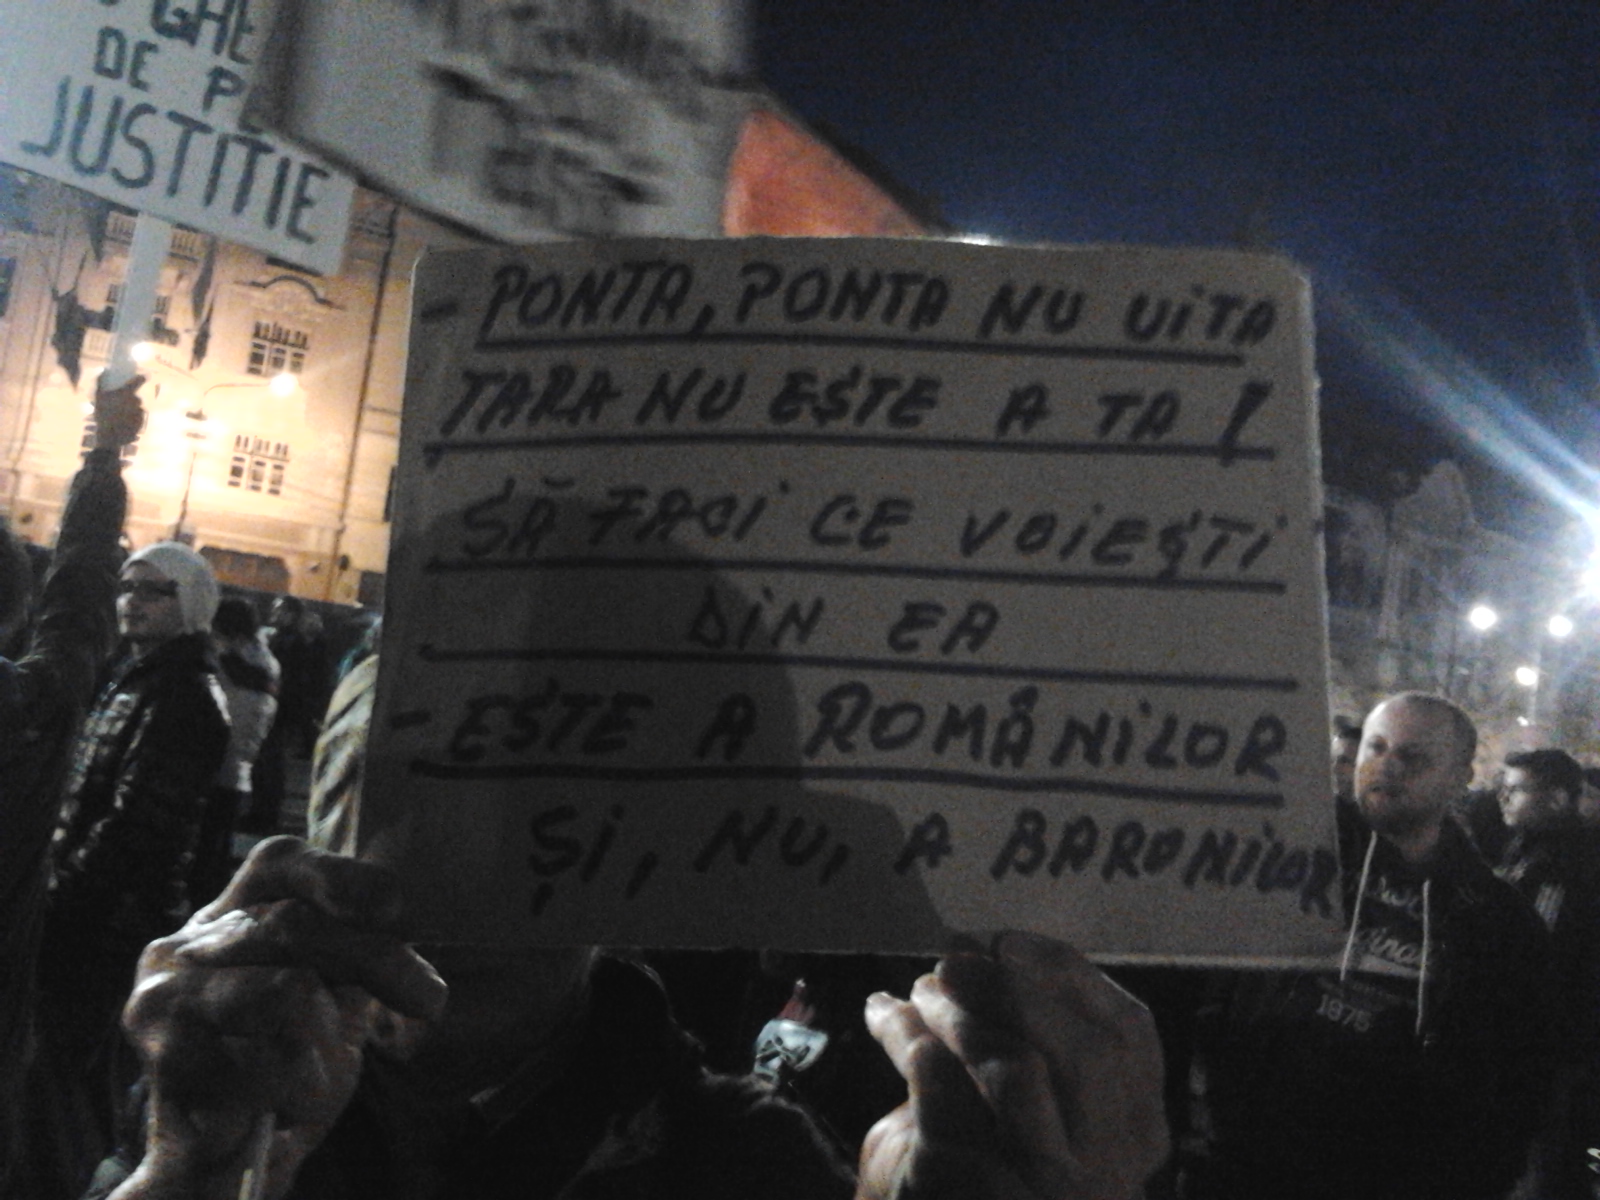 GHE
DE P
JUSTITIE
- PONTA, PONTA NU UITA
TARA NU ESTE A TA !
SĂ FACI CE VOIEȘTI
DIN EA
- ESTE A ROMÂNILOR
ȘI, NU, A BARONILOR
1876